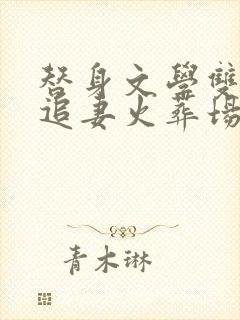 替身文學雙
追妻火葬場
青木琳